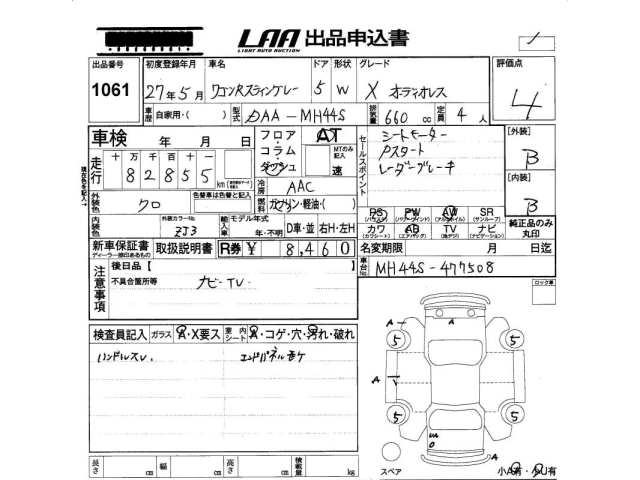 LAA 出品申込書
LIGHT AUTO AUCTION
出品番号 初度登録年月 車名 ドア 形状 グレード 評価点
1061 27年5月 ワゴンRスティングレー 5 W X オーディオレス 4
車歴 自家用・( ) 型式 DAA-MH44S 排気量 660 cc 定員 4 人
車検 年 月 日
フロア・コラム・ダッシュ
AT
MTのみ記入 速
セールスポイント
シートヒーター
Pスタート
レーダーブレーキ
[外装] B
[内装] B
現在名を記入
走行 十 万 千 百 十 一
82855 km
冷房 AAC
燃料 ガソリン・軽油・( )
外装色 クロ
色替車は色替と記入
内装色
外装カラーNo ZJ3
輸入車 モデル年式 年・不明 D車・並 右H・左H
PS (パワステ) PW (パワーウインド) AW (アルミホイル) SR (サンルーフ)
カワ (カワシート) AB (エアバッグ) TV (地デジ) ナビ (ナビゲーション)
純正品のみ丸印
新車保証書 取扱説明書 R券 ¥ 8,460
ディーラー捺印あるもの
名変期限 月 日迄
車台No. MH44S-477508
注意事項
後日品【 】
不具合箇所等 ナビ・TV
ロック車
検査員記入 ガラス A・X要ス 室内シート A・コゲ・穴・汚れ・破れ
ハンドルスレ エンドパネル
A
5 5
A
5 5
UA
A
スペア
長さ cm 幅 cm 高さ cm 積載量 kg
小A有・小U有